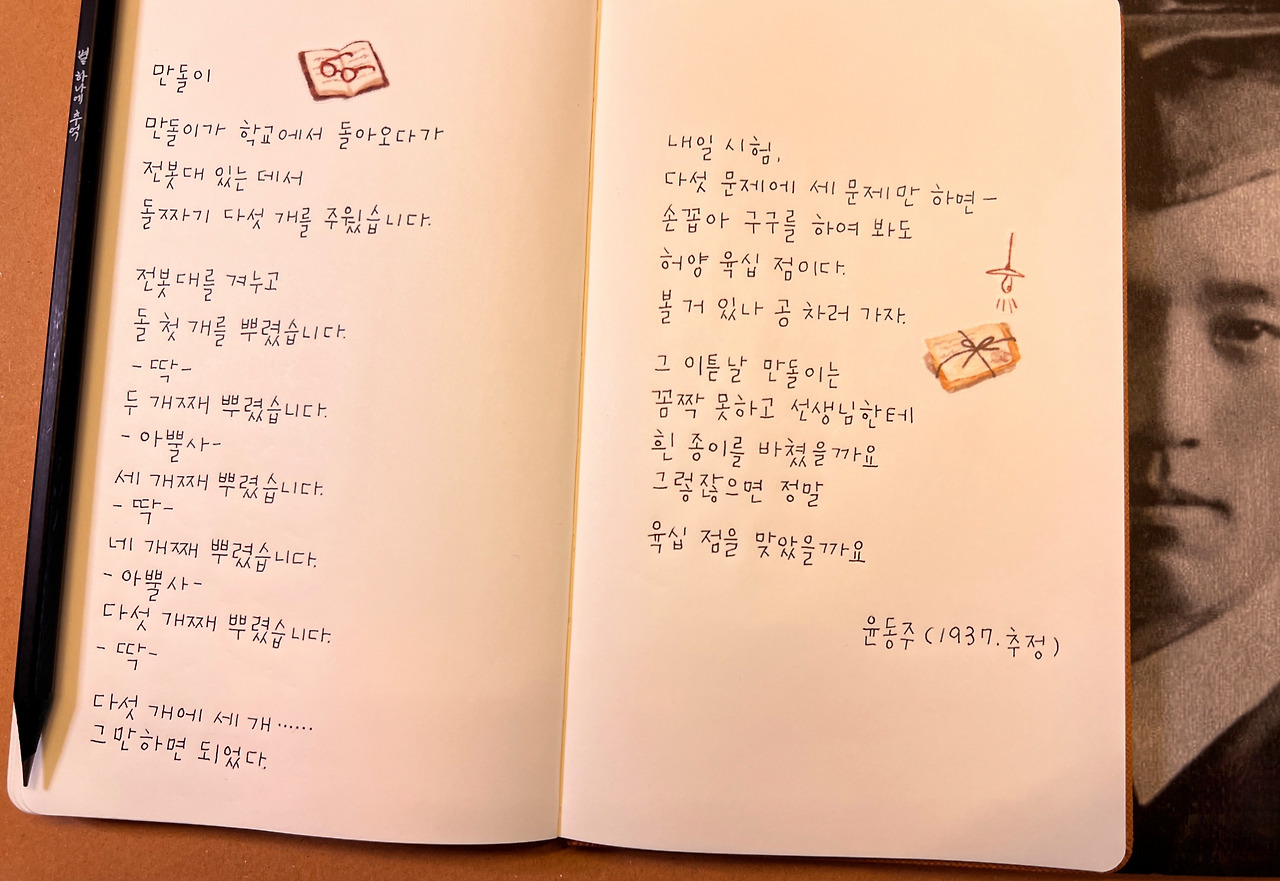 별 하나에 추억
만돌이
만돌이가 학교에서 돌아오다가
전봇대 있는 데서
돌짜기 다섯 개를 주웠습니다.
전봇대를 겨누고
돌 첫 개를 뿌렸습니다.
- 딱 -
두 개째 뿌렸습니다.
- 아뿔사 -
세 개째 뿌렸습니다.
- 딱 -
네 개째 뿌렸습니다.
- 아뿔사 -
다섯 개째 뿌렸습니다.
- 딱 -
다섯 개에 세 개……
그만하면 되었다.
내일 시험,
다섯 문제에 세 문제만 하면 -
손꼽아 구구를 하여 봐도
허양 육십 점이다.
볼 거 있나 공 차러 가자.
그 이튿날 만돌이는
꼼짝 못하고 선생님한테
흰 종이를 바쳤을까요
그렇잖으면 정말
육십 점을 맞았을까요
윤동주 (1937. 추정)